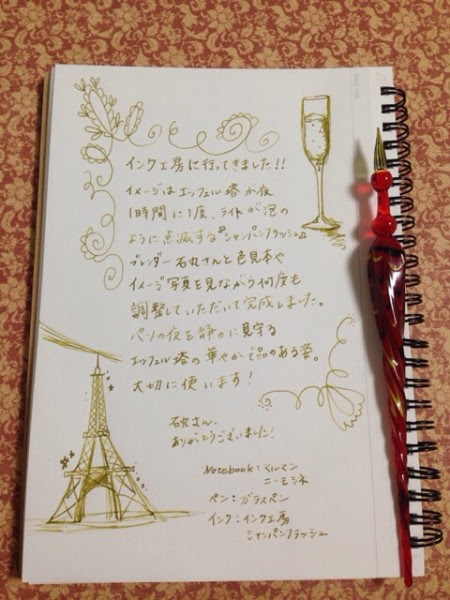 インク工房に行ってきました!!
イメージはエッフェル塔が夜
1時間に1度、ライトが泡の
ように点滅する『シャンパンフラッシュ』
ブレンダー石丸さんと色見本や
イメージ写真を見ながら何度も
調整していただいて完成しました。
パリの夜を静かに見守る
エッフェル塔の華やかで品のある姿。
大切に使います!
石丸さん、
ありがとうございました!
Notebook:マルマン
ニーモシネ
ペン:ガラスペン
インク:インク工房
シャンパンフラッシュ